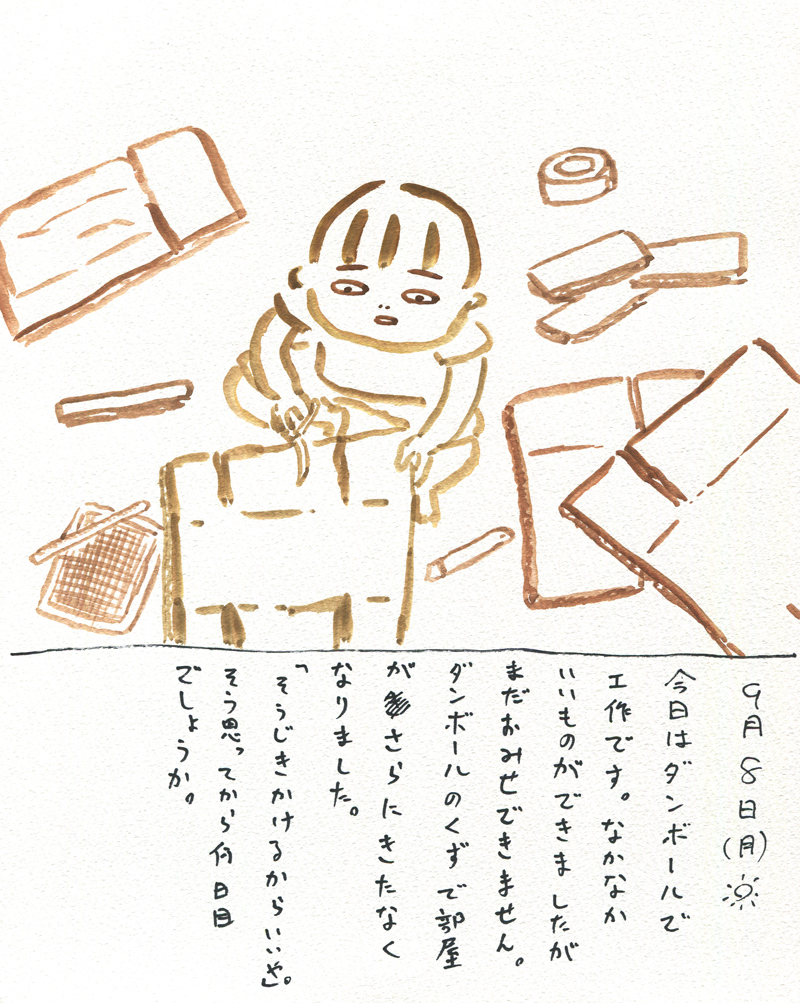 9月8日(月)
今日はダンボールで
工作です。なかなか
いいものができましたが
まだおみせできません。
ダンボールのくずで部屋
がさらにきたなく
なりました。
「そうじきかけるからいいや」。
そう思ってから何日目
でしょうか。